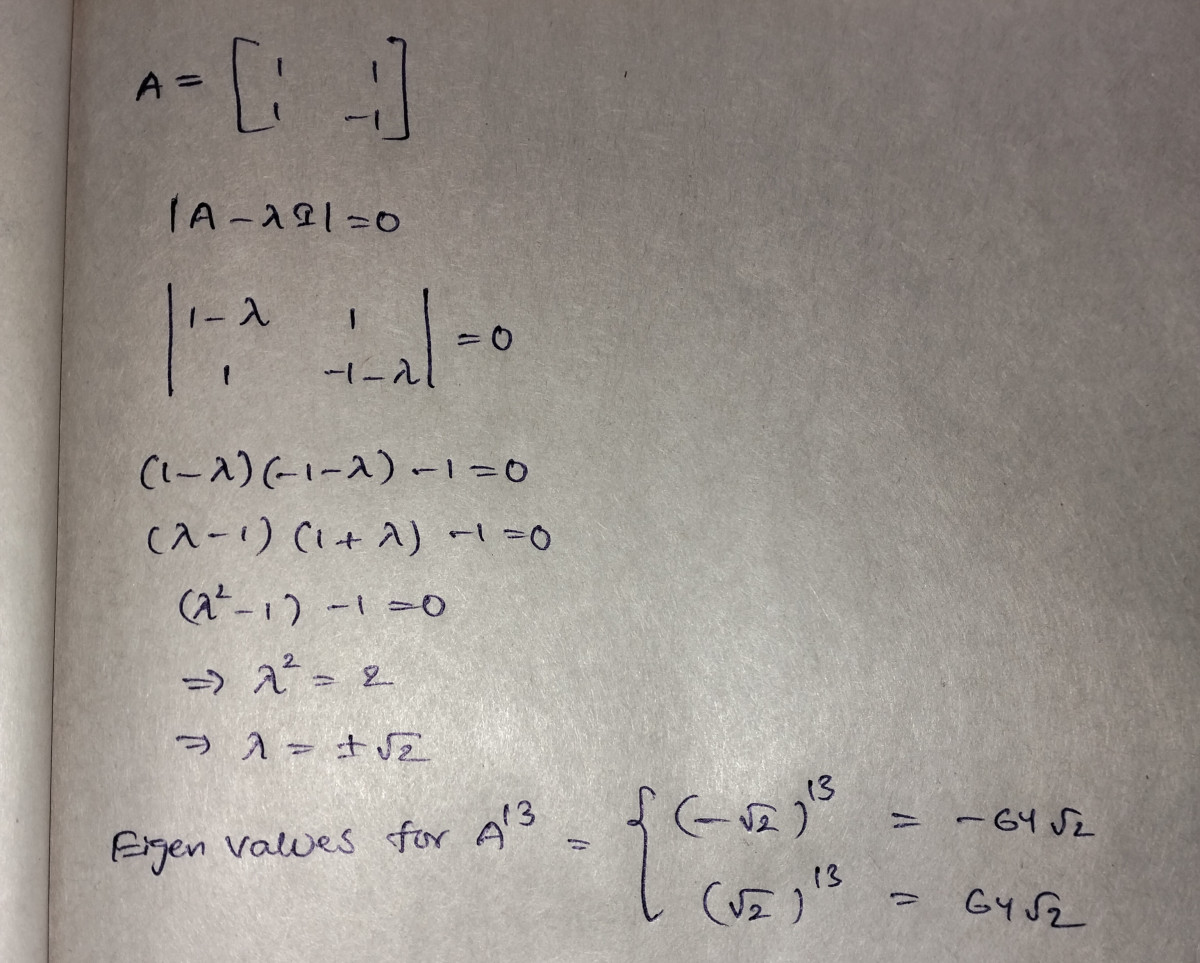 A = [ 1 1
1 -1 ]
|A - λI| = 0
| 1-λ 1
1 -1-λ | = 0
(1-λ)(-1-λ) -1 = 0
(λ-1) (1+λ) -1 = 0
(λ²-1) -1 = 0
⇒ λ² = 2
⇒ λ = ±√2
Eigen values for A¹³ = { (-√2)¹³ = -64√2
(√2)¹³ = 64√2